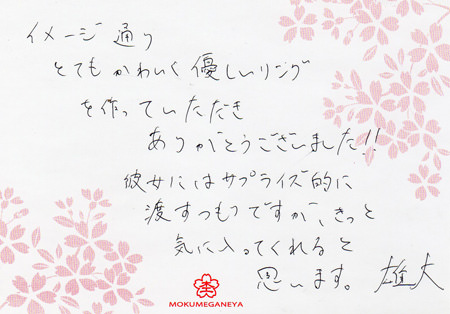 イメージ通り
とてもかわいく優しいリング
を作っていただき
ありがとうございました!!
彼女にはサプライズ的に
渡すつもりですが、きっと
気に入ってくれると
思います。 雄大
MOKUMEGANEYA